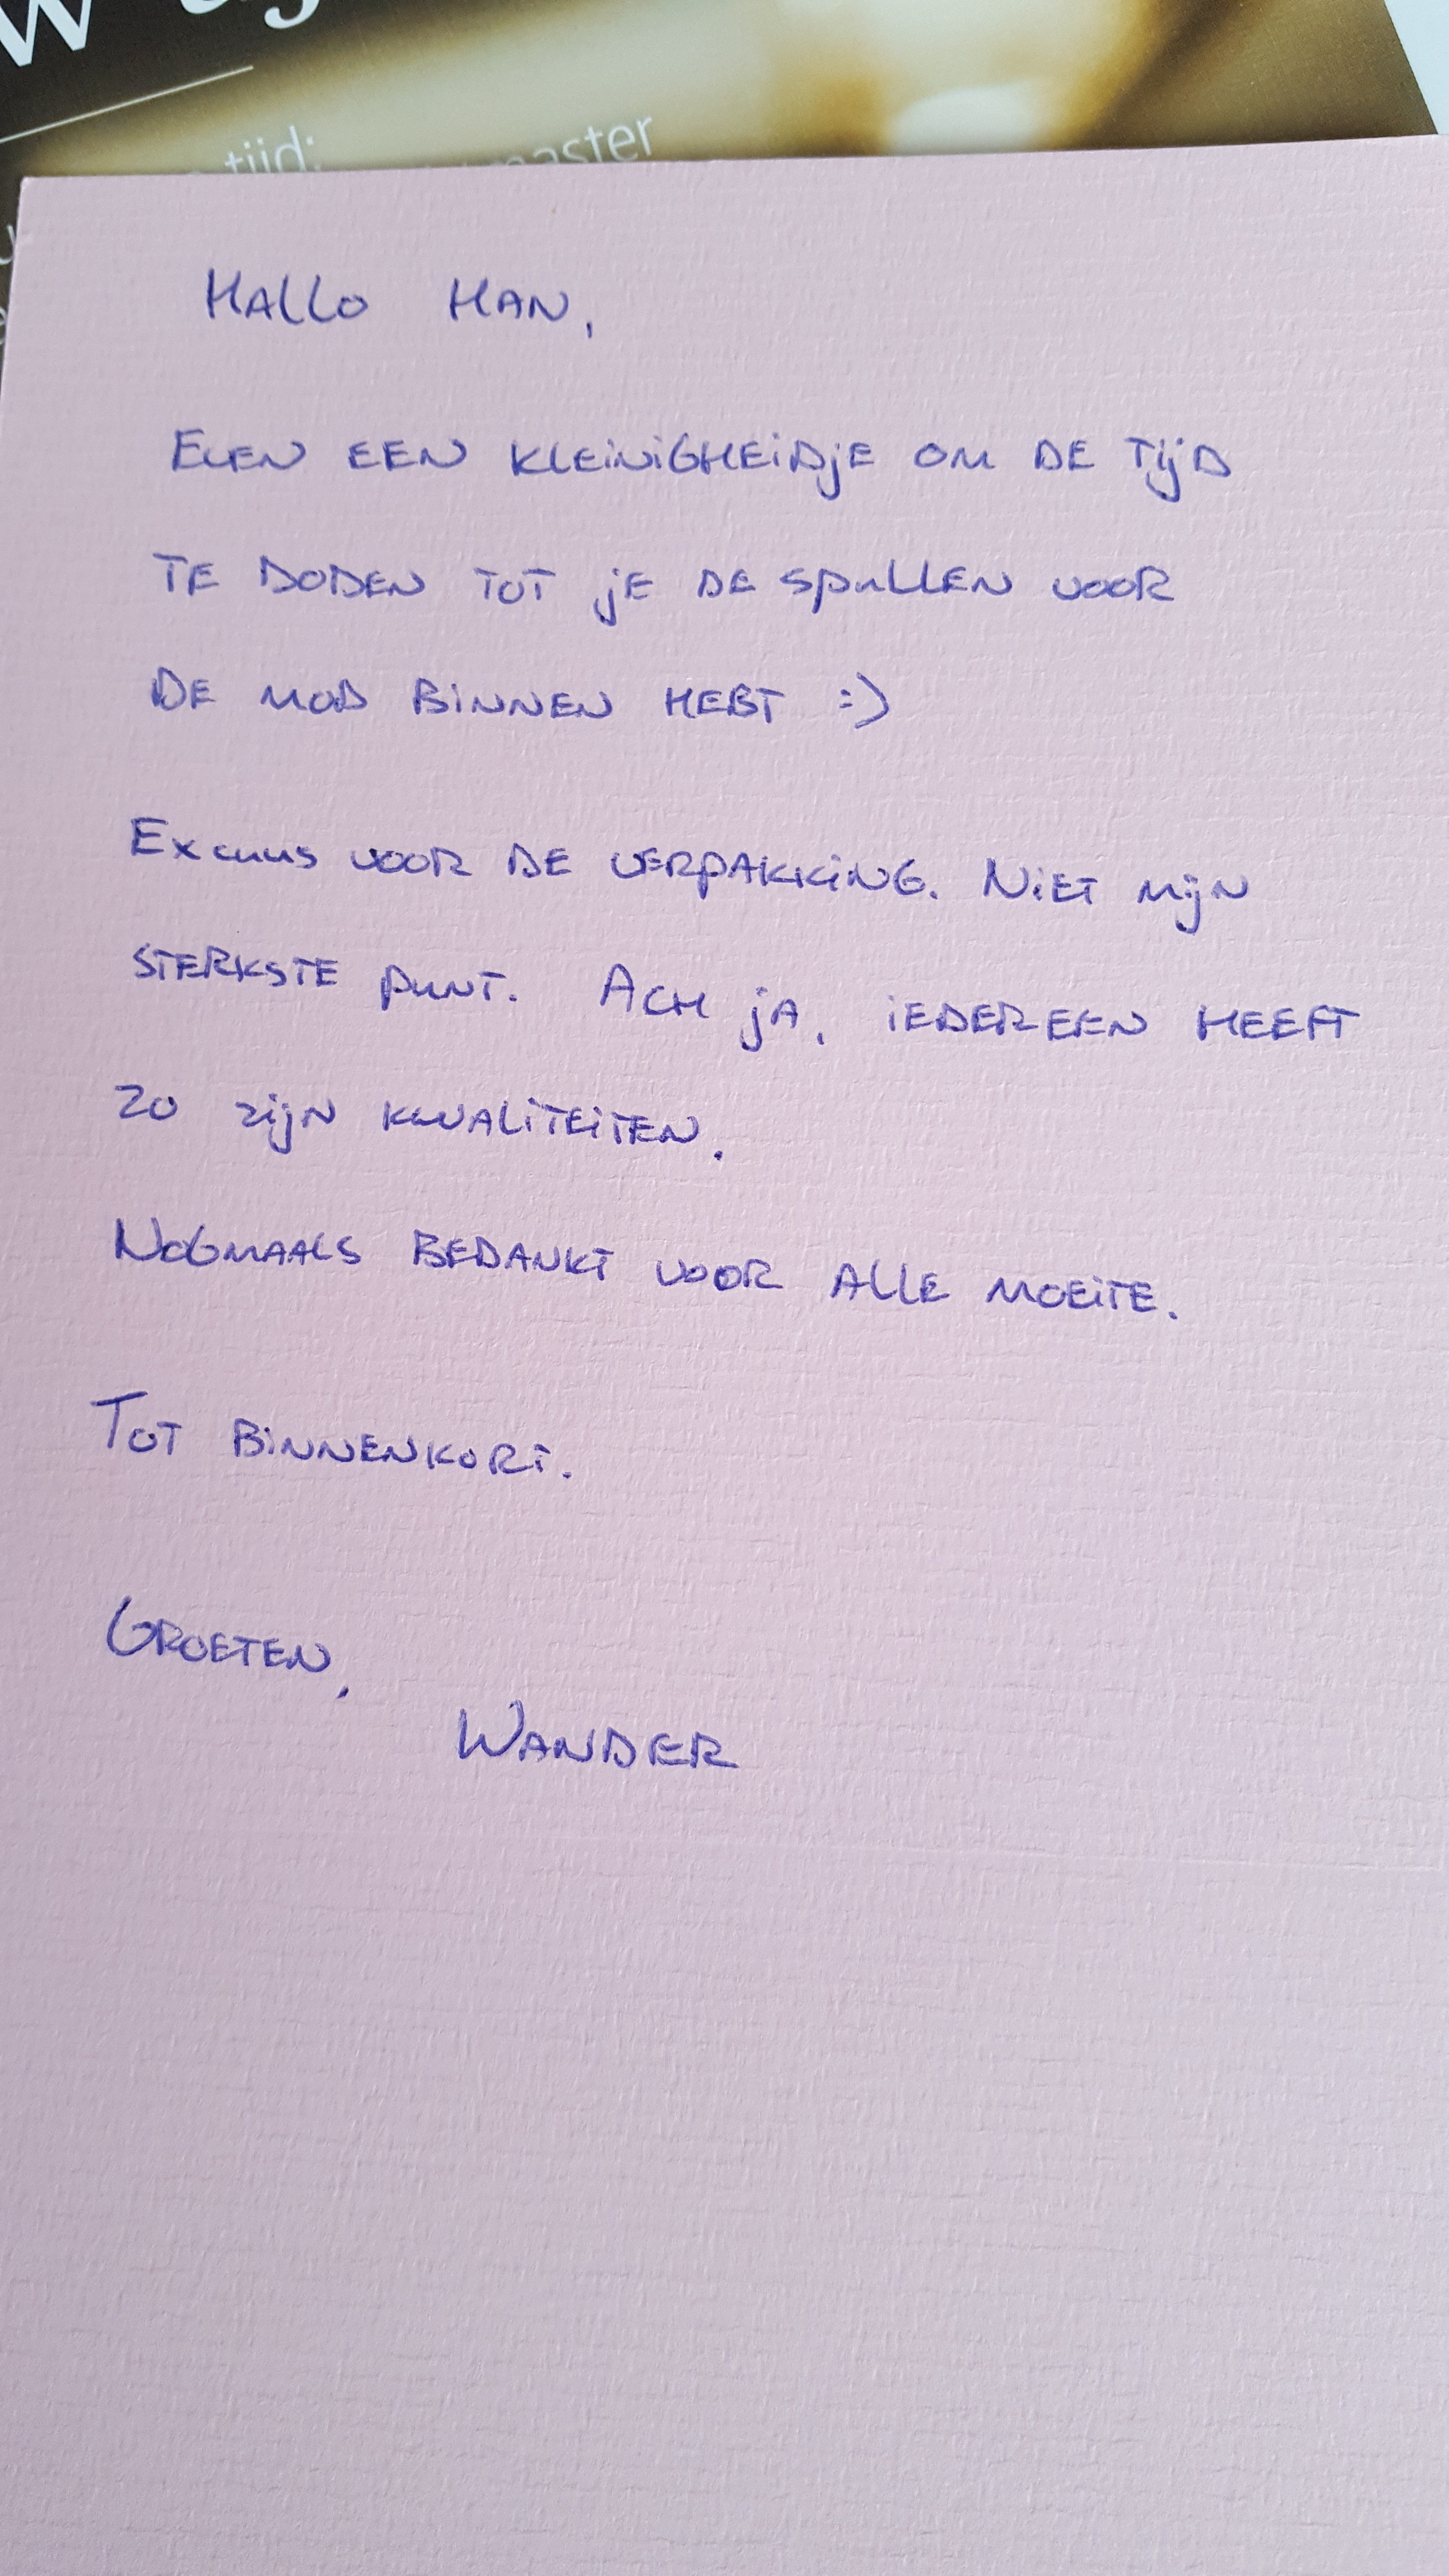 tijd:
master
Hallo Han,
Even een kleinigheidje om de tijd
te doden tot je de spullen voor
de mod binnen hebt :)
Excuus voor de verpakking. Niet mijn
sterkste punt. Ach ja, iedereen heeft
zo zijn kwaliteiten.
Nogmaals bedankt voor alle moeite.
Tot binnenkort.
Groeten,
Wander